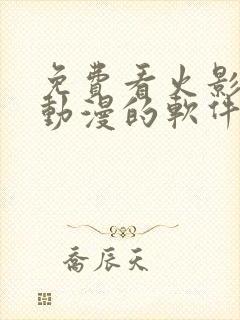 免費看火影
動漫的軟件
喬辰天